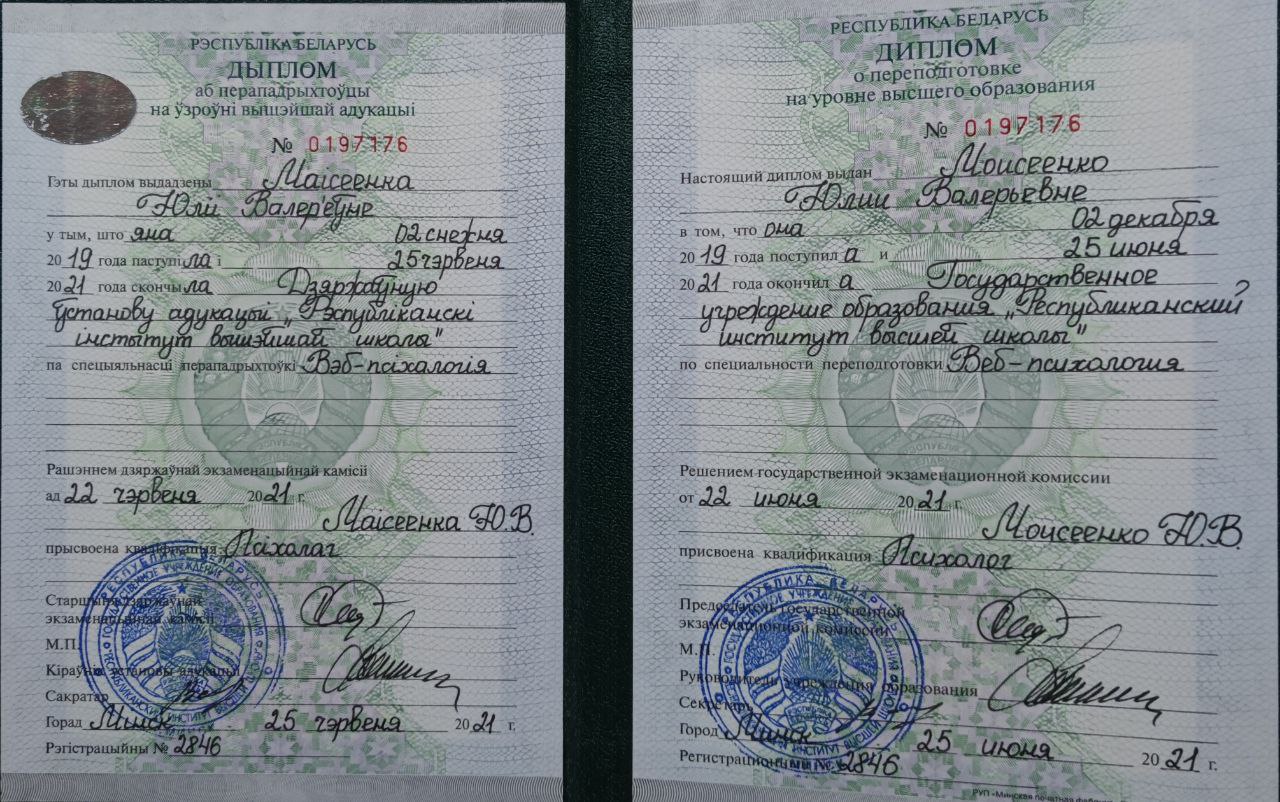 РЭСПУБЛІКА БЕЛАРУСЬ
ДЫПЛОМ
аб перападрыхтоўцы
на ўзроўні вышэйшай адукацыі
№ 0197176
Гэты дыплом выдадзены Маісеенка
Юліі Валер'еўне
у тым, што яна 02 снежня
2019 года паступіла і 25 чэрвеня
2021 года скончыла Дзяржаўную
ўстанову адукацыі „Рэспубліканскі
інстытут вышэйшай школы"
па спецыяльнасці перападрыхтоўкі Вэб-псіхалогія
Рашэннем дзяржаўнай экзаменацыйнай камісіі
ад 22 чэрвеня 2021 г.
Маісеенка Ю.В.
прысвоена кваліфікацыя Псіхолаг
Старшыня дзяржаўнай
экзаменацыйнай камісіі
М.П.
Кіраўнік установы адукацыі
Сакратар
Горад Мінск 25 чэрвеня 2021 г.
Рэгістрацыйны № 2846
РЕСПУБЛИКА БЕЛАРУСЬ
ДИПЛОМ
о переподготовке
на уровне высшего образования
№ 0197176
Настоящий диплом выдан Моисеенко
Юлии Валерьевне
в том, что она 02 декабря
2019 года поступил а и 25 июня
2021 года окончил а Государственное
учреждение образования „Республиканский
институт высшей школы"
по специальности переподготовки Веб-психология
Решением государственной экзаменационной комиссии
от 22 июня 2021 г.
Моисеенко Ю.В.
присвоена квалификация Психолог
Председатель государственной
экзаменационной комиссии
М.П.
Руководитель учреждения образования
Секретарь
Город Минск 25 июня 2021 г.
Регистрационный № 2846
РУП «Минская печатная фабрика»